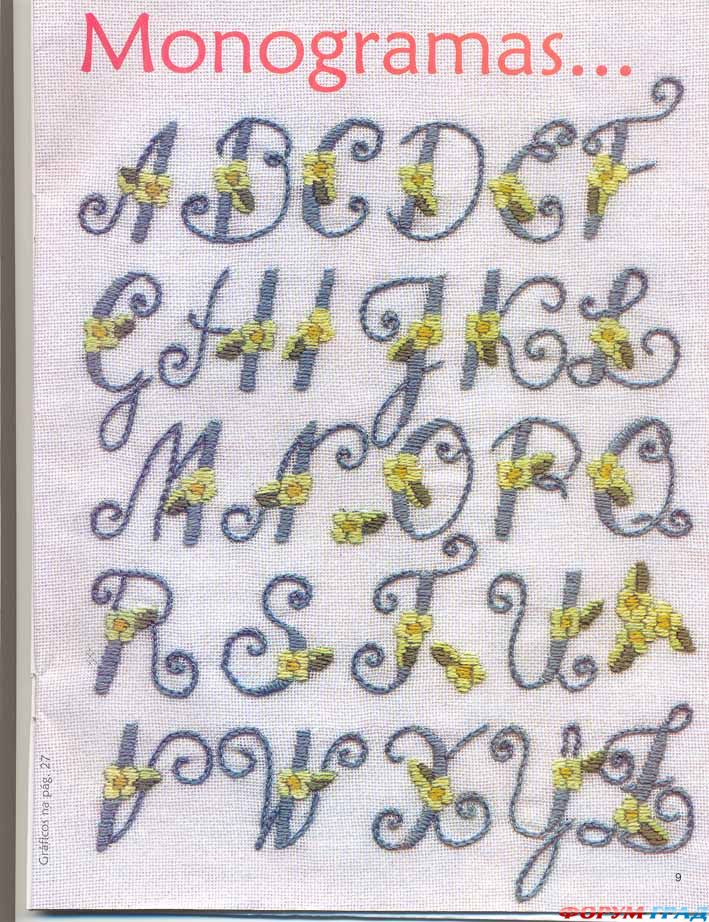 Monogramas...
A B C D E F
G H I J K L
M N O P Q
R S T U
V W X Y Z
Gráficos na pág. 27
9
ФОРУМ-ГРАД